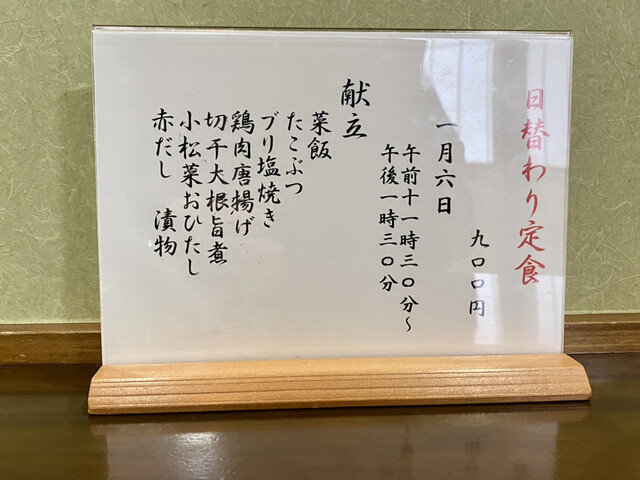 日替わり定食
九〇〇円
一月六日
午前十一時三〇分～
午後一時三〇分
献立
菜飯
たこぶつ
ブリ塩焼き
鶏肉唐揚げ
切干大根旨煮
小松菜おひたし
赤だし　漬物